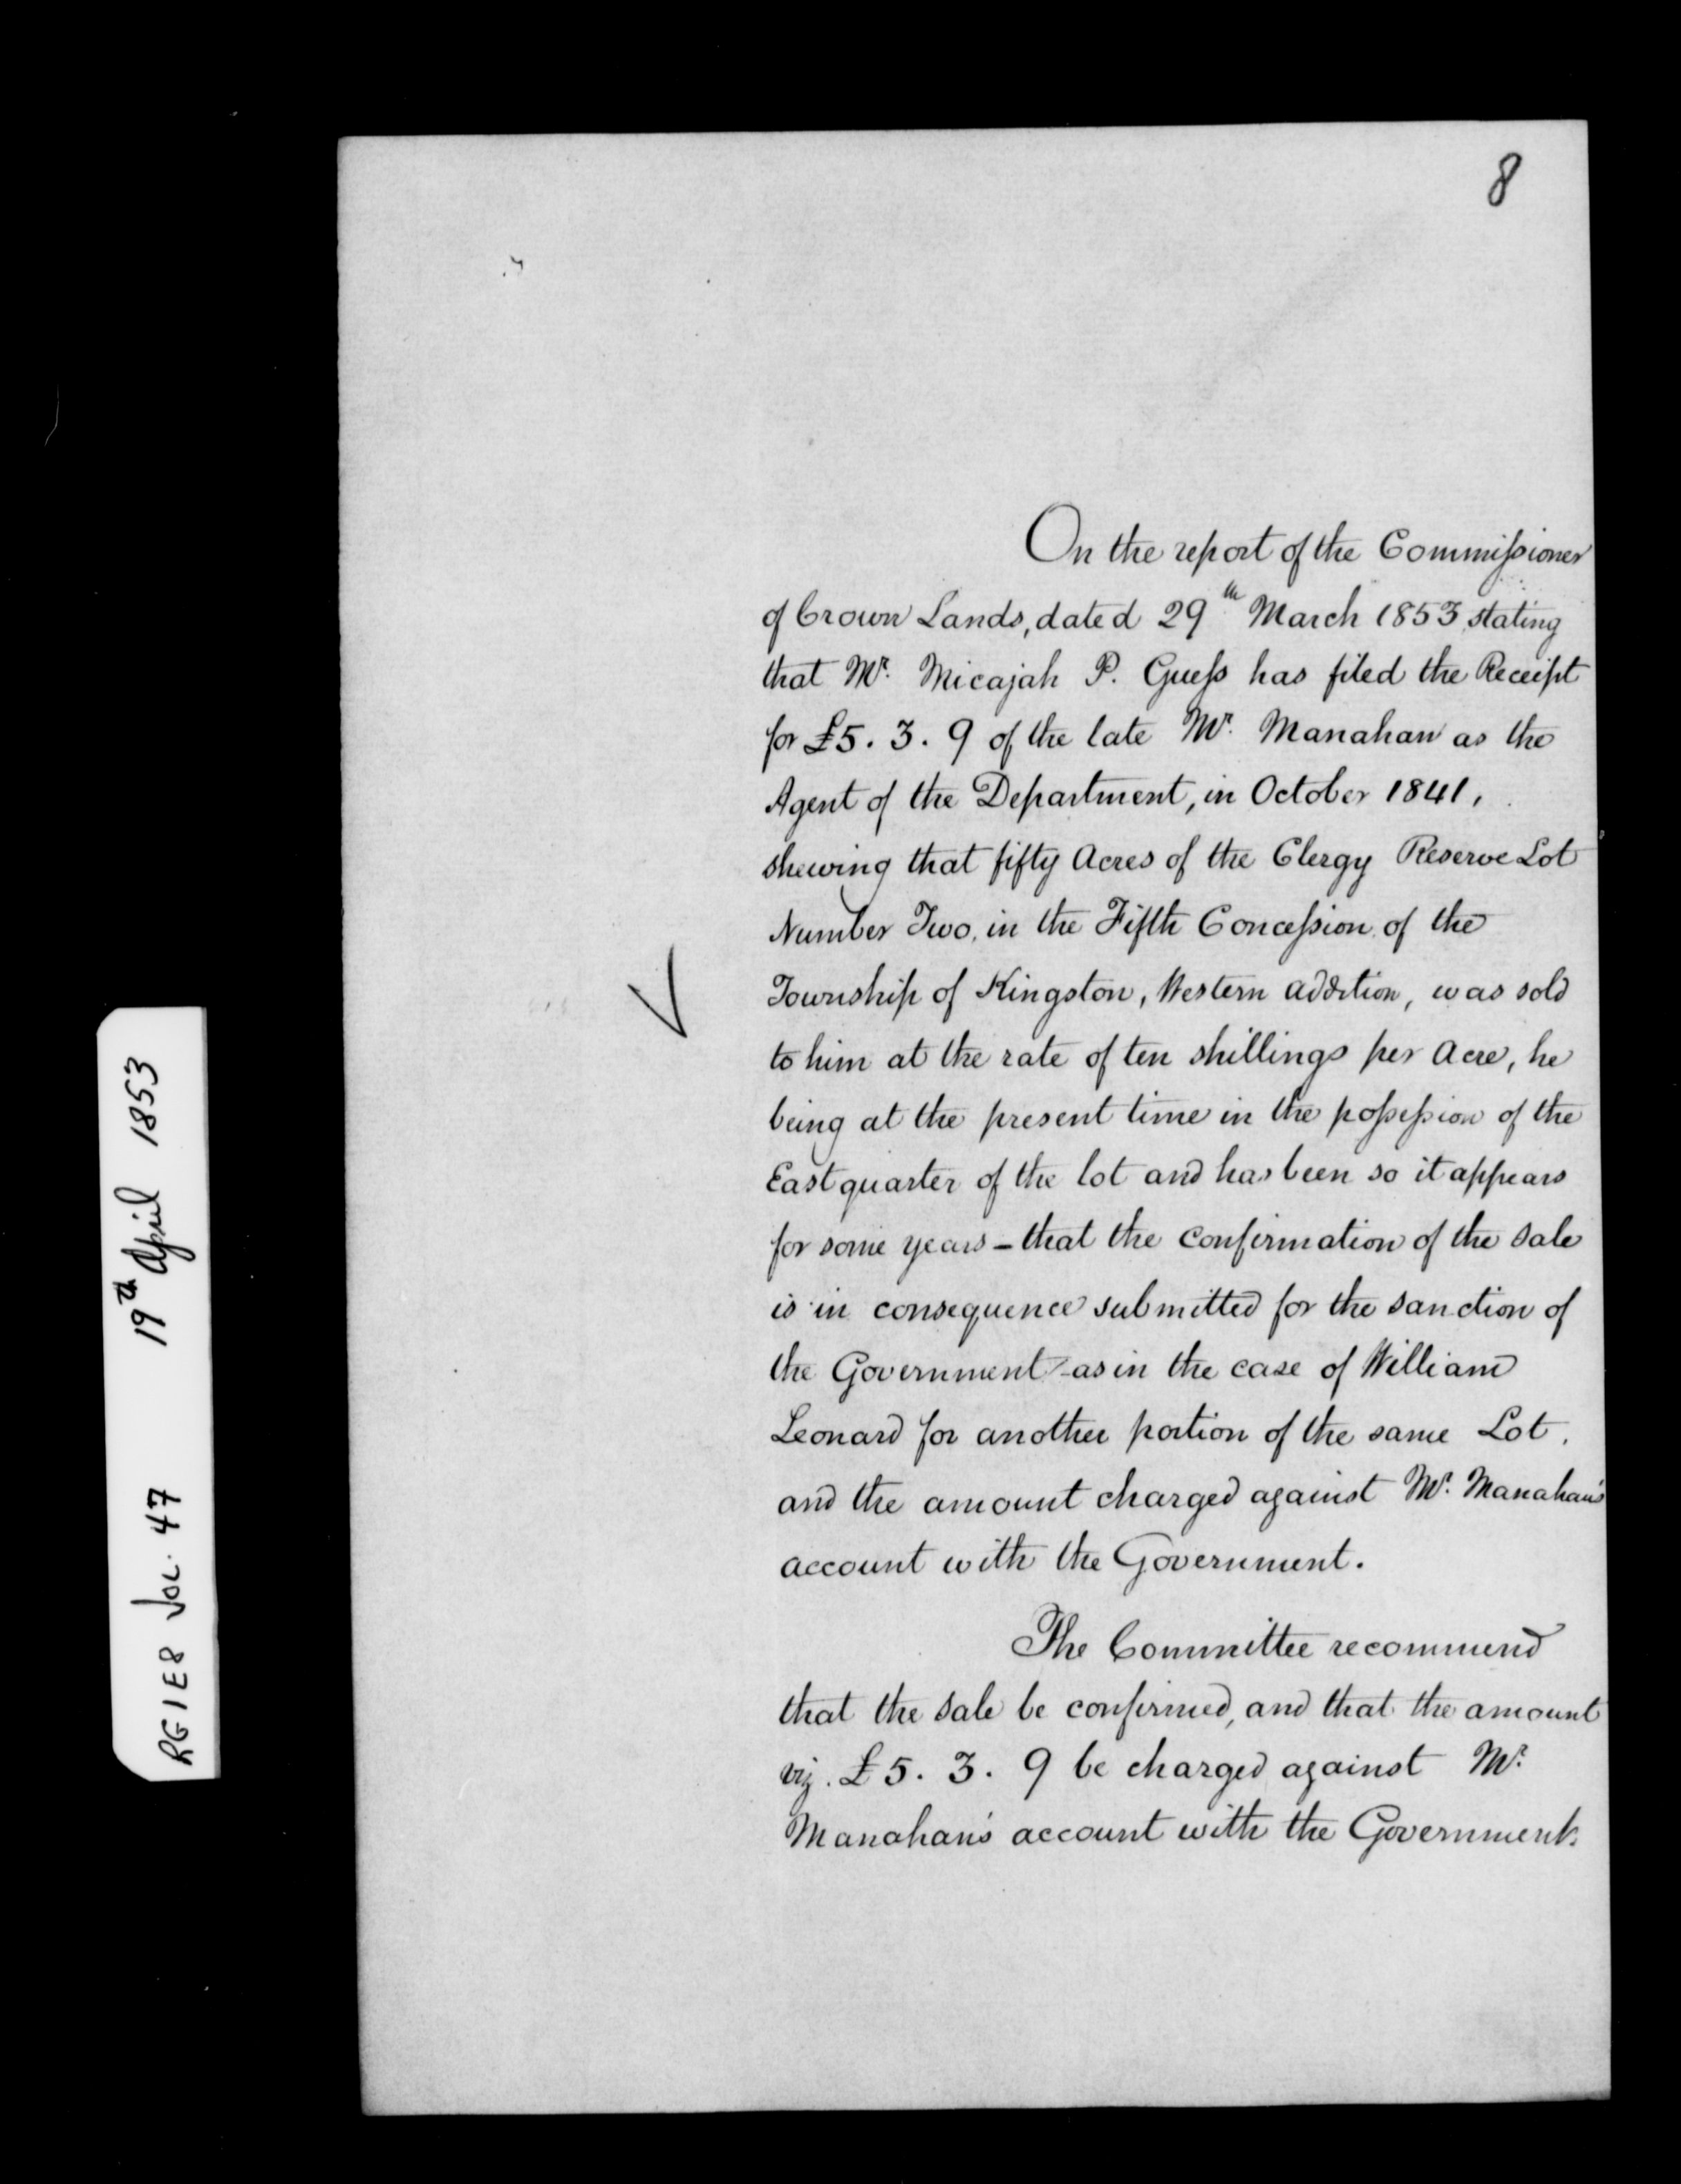 8
On the report of the Commissioner
of Crown Lands, dated 29th March 1853 stating
that Mr. Micajah P. Guess has filed the Receipt
for £5. 3. 9 of the late Mr. Manahan as the
Agent of the Department, in October 1841,
shewing that fifty Acres of the Clergy Reserve Lot
Number Two, in the Fifth Concession of the
Township of Kingston, Western addition, was sold
to him at the rate of ten shillings per Acre, he
being at the present time in the possession of the
East quarter of the lot and has been so it appears
for some years – that the confirmation of the sale
is in consequence submitted for the sanction of
the Government – as in the case of William
Leonard for another portion of the same Lot,
and the amount charged against Mr. Manahan's
account with the Government.
The Committee recommend
that the sale be confirmed, and that the amount
viz. £5. 3. 9 be charged against Mr.
Manahan's account with the Government.
RG 1 E8 Vol. 47 19th April 1853